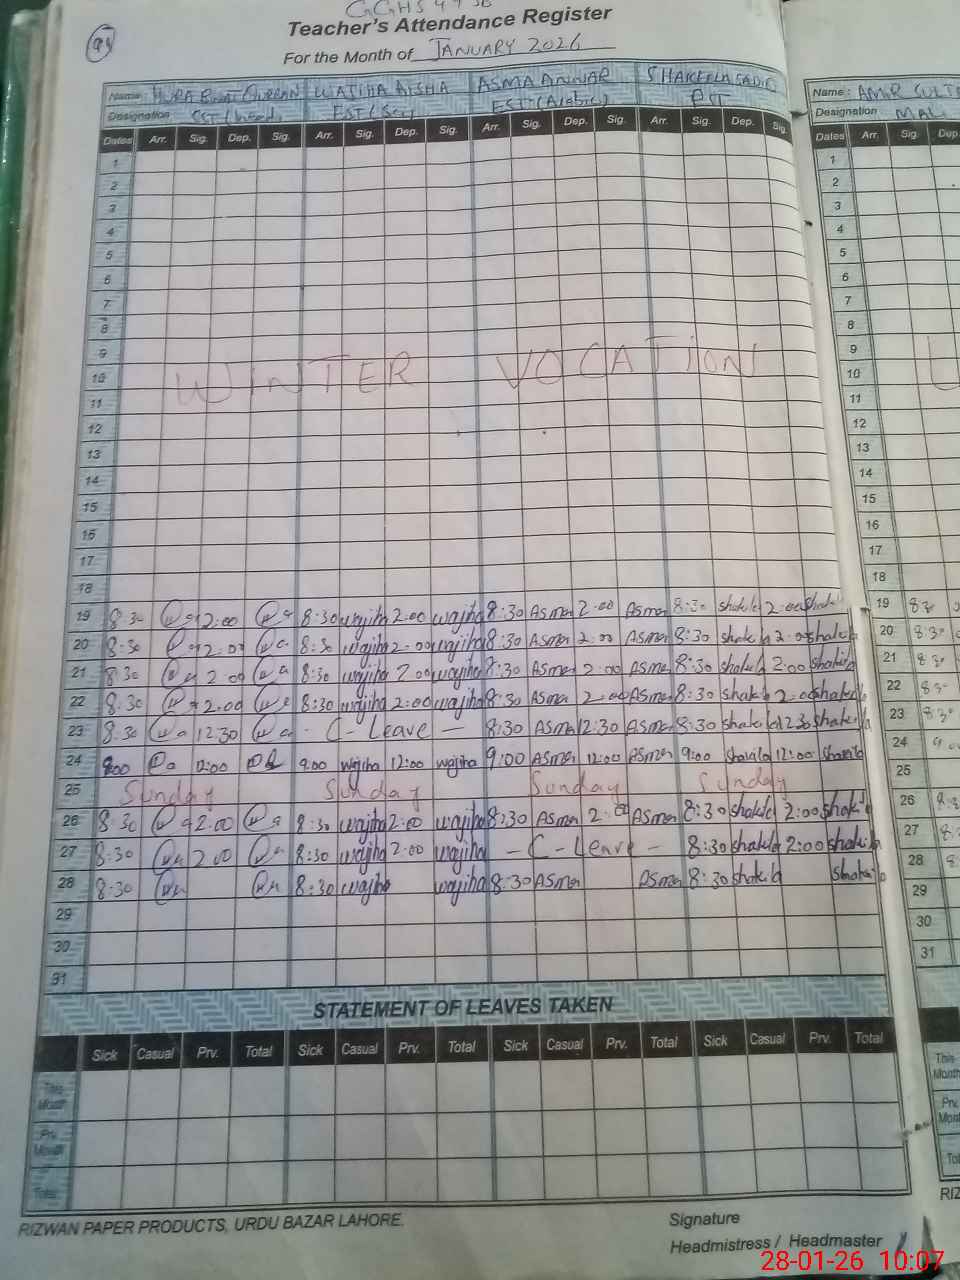 GGHS 49 SB
Teacher's Attendance Register
95
For the Month of JANUARY 2026
Name: WAJIHA AISHA ASMA ANWAR SHAKEELA SADIQ Name: AMIR
Designation EST (Sci) EST (Arabic) PST Designation
Dates Arr. Sig. Dep. Sig. Arr. Sig. Dep. Sig. Arr. Sig. Dep. Sig. Arr. Sig. Dep. Sig. Dates Arr. Sig. Dep.
1 1
2 2
3 3
4 4
5 5
6 6
7 7
8 8
9 9
WINTER VOCATION
10 10
11 11
12 12
13 13
14 14
15 15
16 16
17 17
18 18
19 8:30 2:00 8:30 wajiha 2:00 wajiha 8:30 Asma 2:00 Asma 8:30 shakila 2:00 shakila 19 8:30
20 8:30 2:00 8:30 wajiha 2:00 wajiha 8:30 Asma 2:00 Asma 8:30 shakila 2:00 shakila 20 8:30
21 8:30 2:00 8:30 wajiha 2:00 wajiha 8:30 Asma 2:00 Asma 8:30 shakila 2:00 shakila 21 8:30
22 8:30 2:00 8:30 wajiha 2:00 wajiha 8:30 Asma 2:00 Asma 8:30 shakila 2:00 shakila 22 8:30
23 8:30 12:30 - C - Leave - 8:30 Asma 12:30 Asma 8:30 shakila 12:30 shakila 23 8:30
24 9:00 12:00 9:00 wajiha 12:00 wajiha 9:00 Asma 12:00 Asma 9:00 shakila 12:00 shakila 24 9:00
25 Sunday Sunday Sunday Sunday 25
26 8:30 2:00 8:30 wajiha 2:00 wajiha 8:30 Asma 2:00 Asma 8:30 shakila 2:00 shakila 26
27 8:30 2:00 8:30 wajiha 2:00 wajiha - C - Leave - 8:30 shakila 2:00 shakila 27
28 8:30 8:30 wajiha wajiha 8:30 Asma Asma 8:30 shakila shakila 28
29 29
30 30
31 31
STATEMENT OF LEAVES TAKEN
Sick Casual Prv. Total Sick Casual Prv. Total Sick Casual Prv. Total Sick Casual Prv. Total
This Month This Month
Prv. Month Prv. Month
Total
RIZWAN PAPER PRODUCTS, URDU BAZAR LAHORE.
Signature
Headmistress / Headmaster
28-01-26 10:07